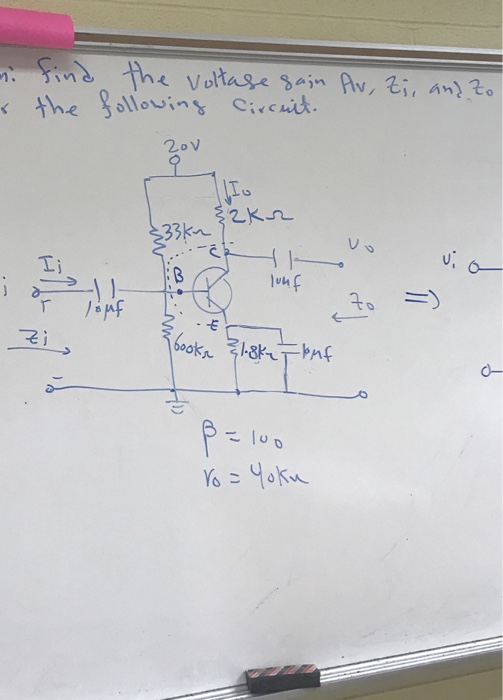 n: find the voltage gain Av, Zi, and Zo
the following circuit.
20V
Io
33kΩ
2KΩ
C
Vo
Ii
B
10μf
10μf
Zo
=>
Vi
Zi
E
600kΩ
1.8kΩ
10μf
β = 100
ro = 40kΩ